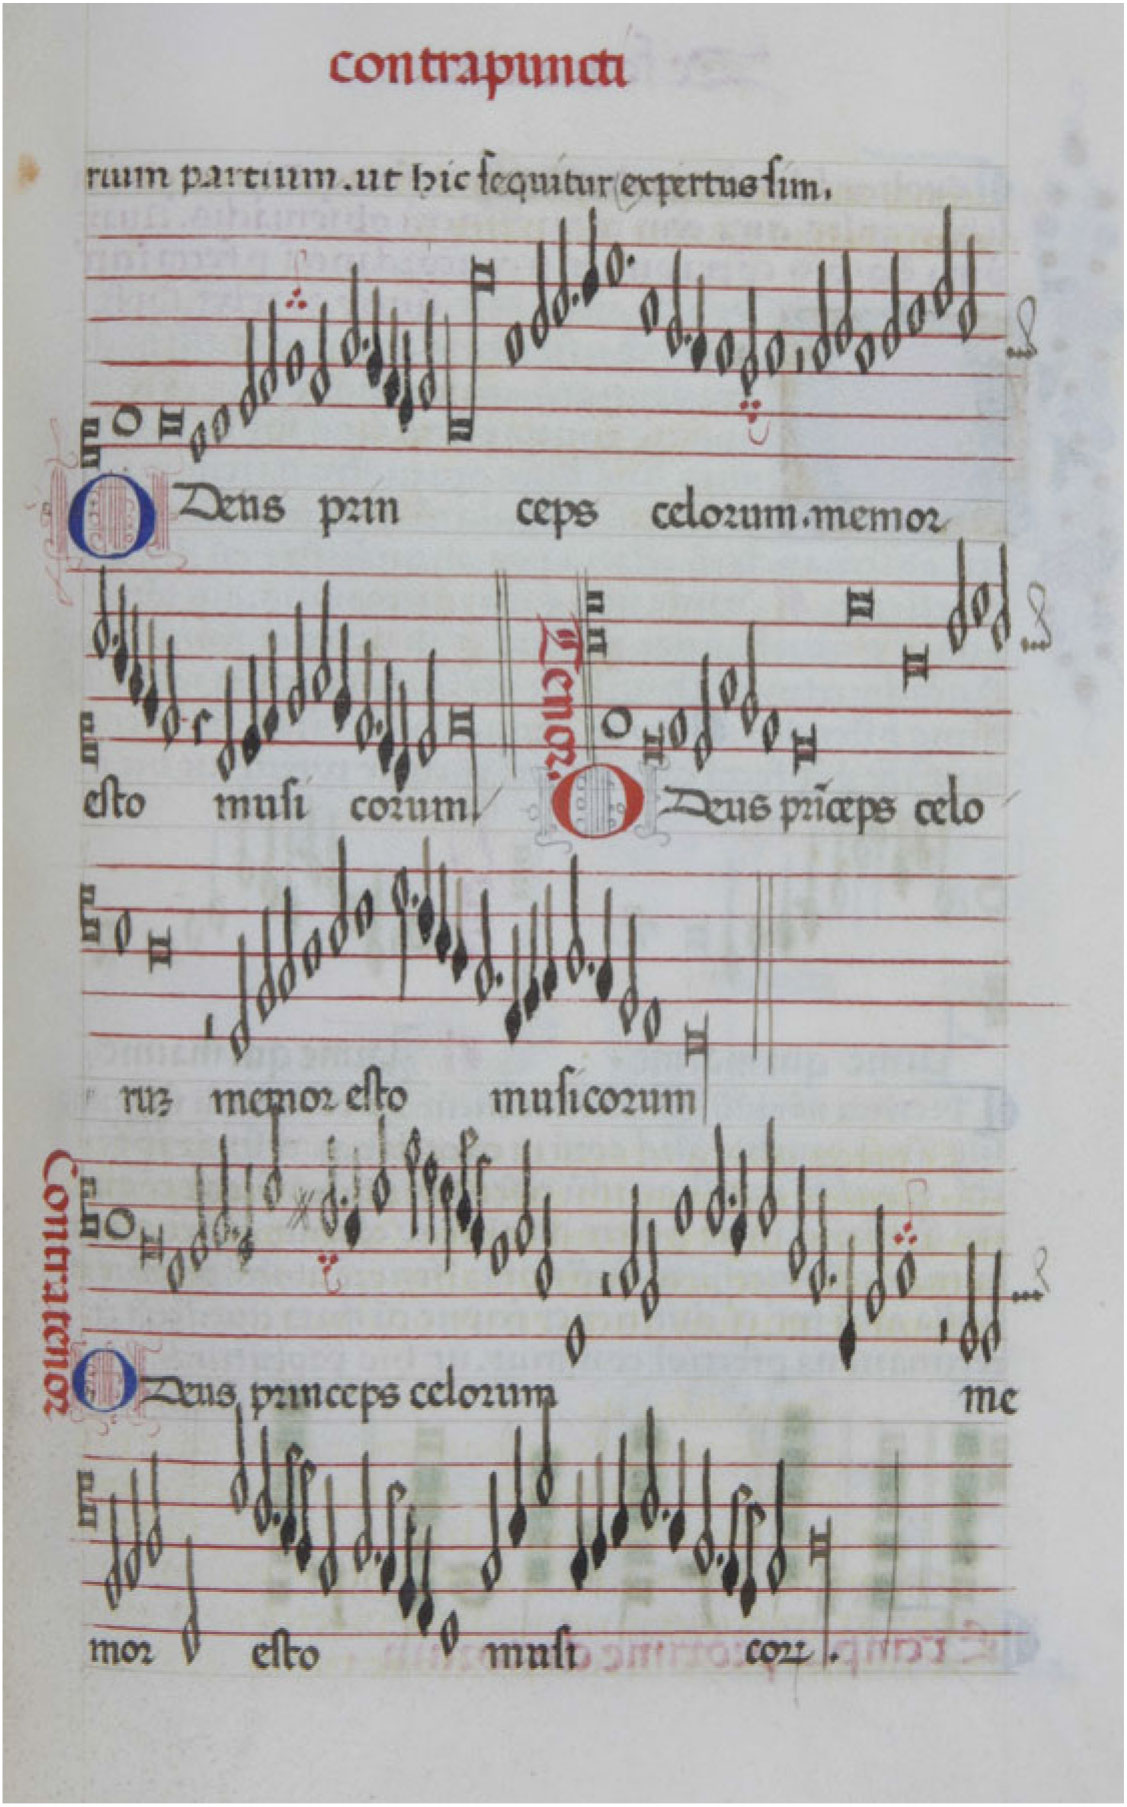 contrapuncti
rium partium. ut hic sequitur expertus sim.
O Deus prin ceps celorum. memor
esto musi corum
Tenor.
O Deus prīceps celo
ruꝫ memor esto musicorum
Contratenor
O Deus princeps celorum me
mor esto musi coꝝ.